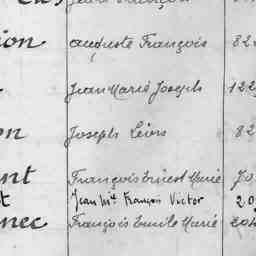 ion auguste François 82
Jean Marie Joseph 122
on Joseph Léon 82
nt François Ernest Marie 70
t Jean Mie François Victor 20
nec François Emile Marie 204